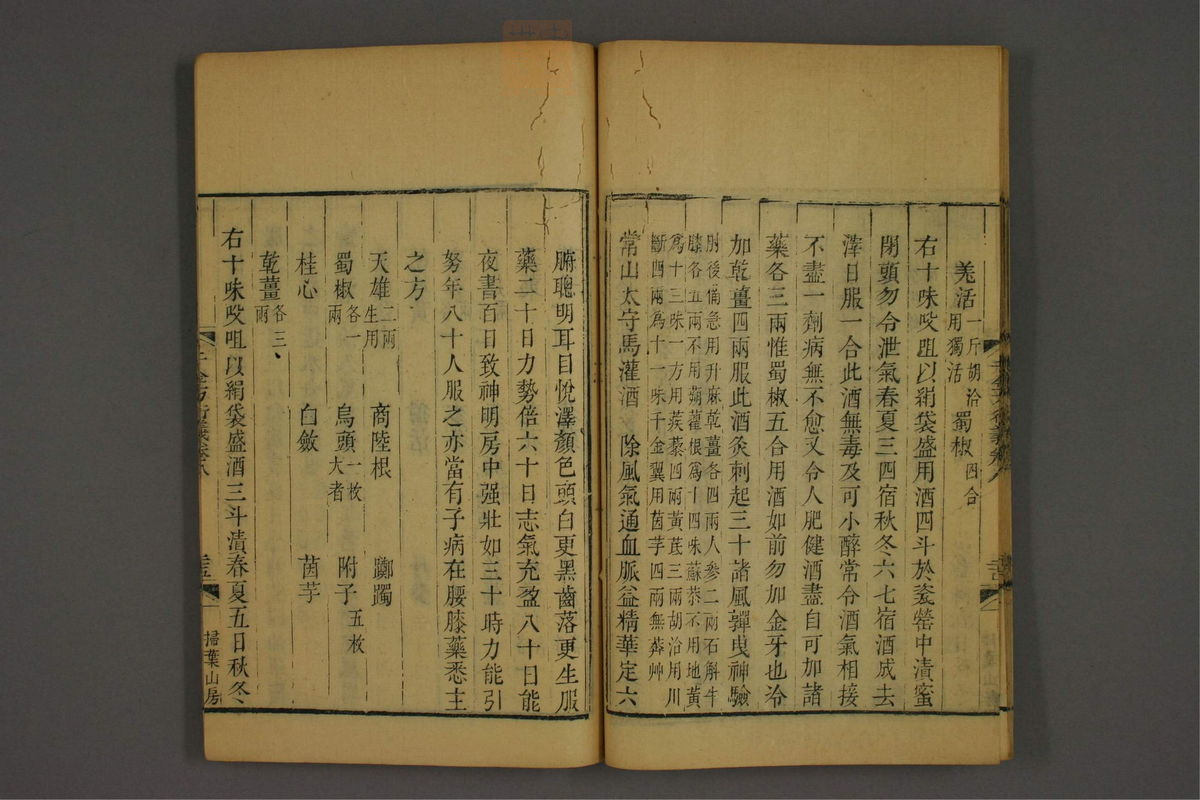 羌活一斤胡洽用獨活　蜀椒四合
右十味㕮咀以絹袋盛用酒四斗於瓷罌中漬蜜
閉頭勿令泄氣春夏三四宿秋冬六七宿酒成去
滓日服一合此酒無毒及可小醉常令酒氣相接
不盡一劑病無不愈又令人肥健酒盡自可加諸
藥各三兩惟蜀椒五合用酒如前勿加金牙也冷
加乾薑四兩服此酒灸刺起三十諸風嚲曳神驗
肘後備急用升麻乾薑各四兩人參二兩石斛牛
膝各五兩不用蒴藋根為十四味蘇恭不用地黃
為十三味一方用蒺藜四兩黃茋三兩胡洽用川
斷四兩為十一味千金翼用茵芋四兩無莽艸
常山太守馬灌酒　除風氣通血脈益精華定六
腑聰明耳目悅澤顏色頭白更黑齒落更生服
藥二十日力勢倍六十日志氣充盈八十日能
夜書百日致神明房中强壯如三十時力能引
努年八十人服之亦當有子病在腰膝藥悉主
之方
天雄二兩生用　商陸根　躑躅
蜀椒各一兩　烏頭一枚大者　附子五枚
桂心　白斂　茵芋
乾薑各三兩
右十味㕮咀以絹袋盛酒三斗漬春夏五日秋冬
掃葉山房